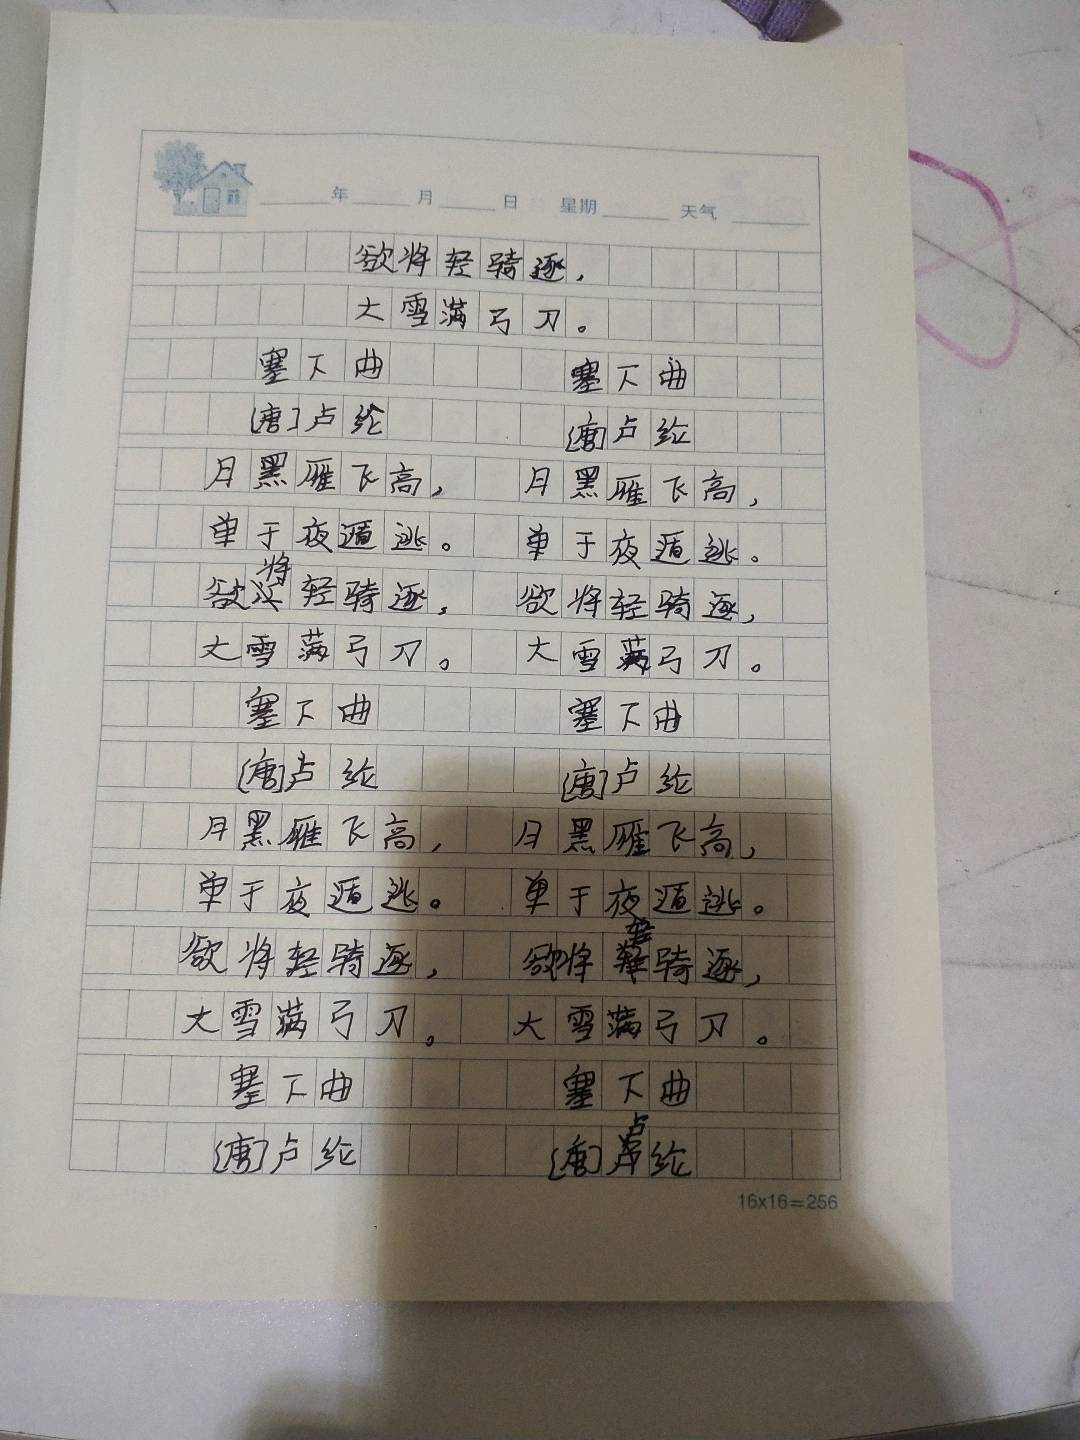 年 月 日 星期 天气
欲将轻骑逐，
大雪满弓刀。
塞下曲 塞下曲
[唐]卢纶 [唐]卢纶
月黑雁飞高， 月黑雁飞高，
单于夜遁逃。 单于夜遁逃。
欲将轻骑逐， 欲将轻骑逐，
大雪满弓刀。 大雪满弓刀。
塞下曲 塞下曲
[唐]卢纶 [唐]卢纶
月黑雁飞高， 月黑雁飞高，
单于夜遁逃。 单于夜遁逃。
欲将轻骑逐， 欲将轻骑逐，
大雪满弓刀。 大雪满弓刀。
塞下曲 塞下曲
[唐]卢纶 [唐]卢纶
16x16=256